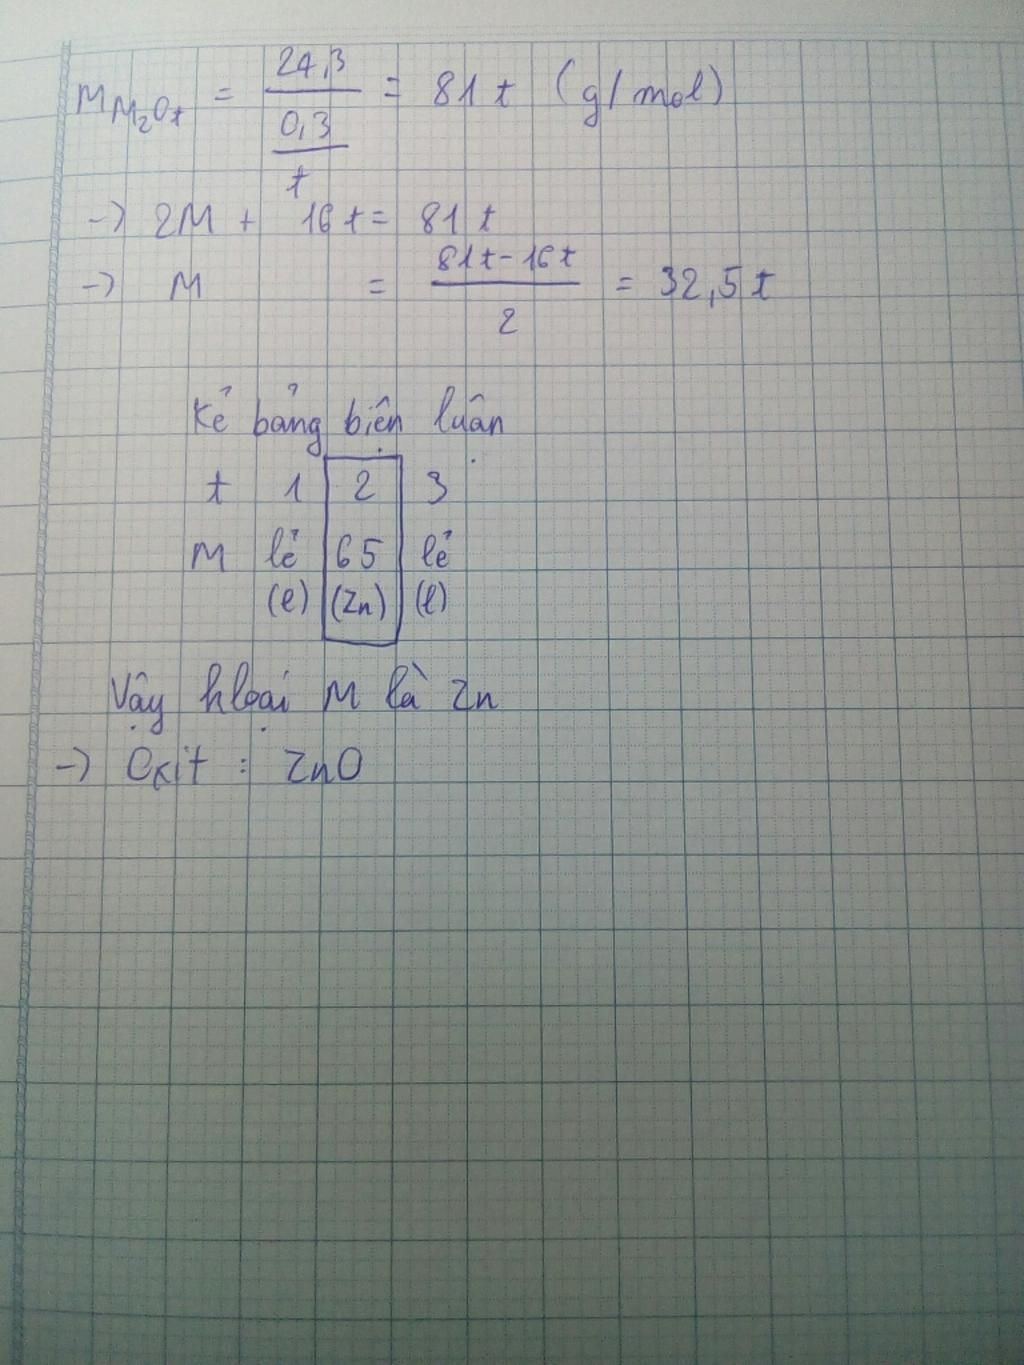 M M₂Oₜ = 24,3 / (0,3 / t) = 81 t (g/mol)
-> 2M + 16 t = 81 t
-> M = (81t - 16t) / 2 = 32,5 t
Kẻ bảng biện luận
t 1 2 3
M lẻ 65 lẻ
(l) (Zn) (l)
Vậy kloại M là Zn
-> Oxit : ZnO